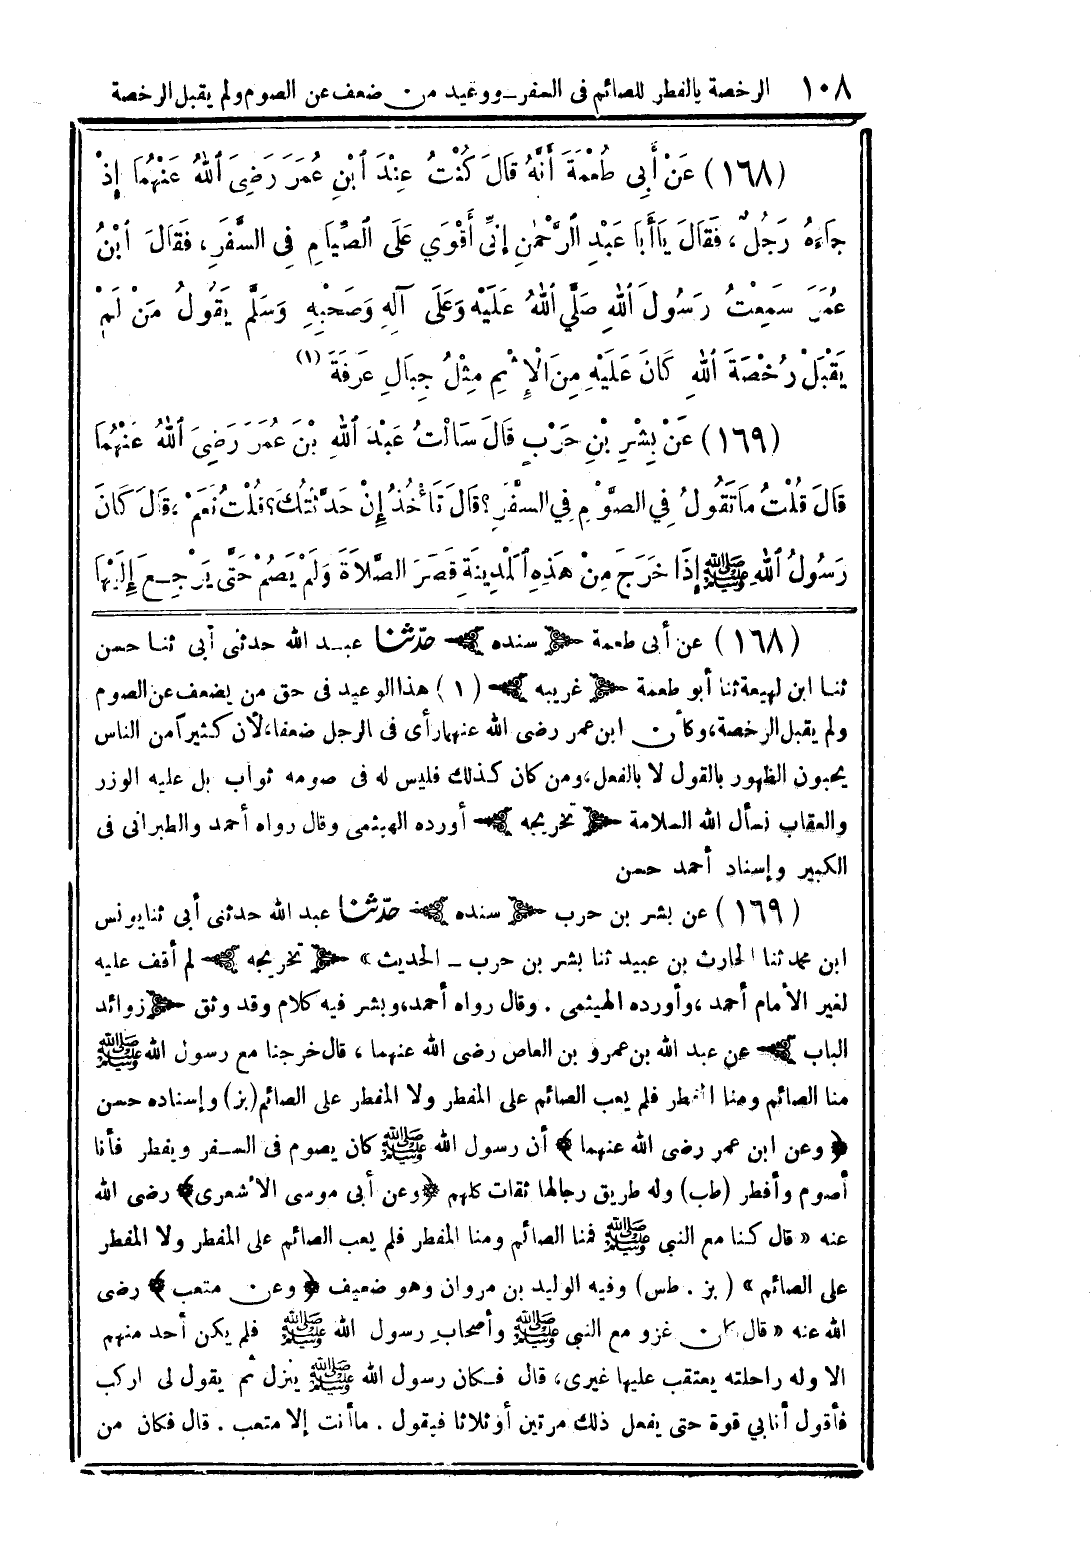 ١٠٨ الرخصة بالفطر للصائم فى السفر ــ ووعيد من ضعف عن الصوم ولم يقبل الرخصة
(١٦٨) عَنْ أَبِى طُعْمَةَ أَنَّهُ قَالَ كُنْتُ عِنْدَ ابْنِ عُمَرَ رَضِىَ اللهُ عَنْهُمَا إِذْ
جَاءَهُ رَجُلٌ، فَقَالَ يَاأَبَا عَبْدِ الرَّحْمٰنِ إِنِّى أَقْوَي عَلَى الصِّيَامِ فِى السَّفَرِ، فَقَالَ ابْنُ
عُمَرَ سَمِعْتُ رَسُولَ اللهِ صَلَّي اللهُ عَلَيْهِ وَعَلَى آلِهِ وَصَحْبِهِ وَسَلَّمَ يَقُولُ مَنْ لَمْ
يَقْبَلْ رُخْصَةَ اللهِ كَانَ عَلَيْهِ مِنَ الْإِثْمِ مِثْلُ جِبَالِ عَرَفَةَ (١)
(١٦٩) عَنْ بِشْرِ بْنِ حَرْبٍ قَالَ سَالْتُ عَبْدَ اللهِ بْنَ عُمَرَ رَضِىَ اللهُ عَنْهُمَا
قَالَ قُلْتُ مَاتَقُولُ فِي الصَّوْمِ فِي السَّفَرِ؟ قَالَ تَأْخُذُ إِنْ حَدَّثْتُكَ؟ قُلْتُ نَعَمْ، قَالَ كَانَ
رَسُولُ اللهِ ﷺ إِذَا خَرَجَ مِنْ هَذِهِ الْمَدِينَةِ قَصَرَ الصَّلَاةَ وَلَمْ يَصُمْ حَتَّى يَرْجِعَ إِلَيْهَا
(١٦٨) عن أبى طعمة ﴿ سنده ﴾ حدّثنا عبد الله حدثنى أبى ثنا حسن
ثنا ابن لهيعة ثنا أبو طعمة ﴿ غريبه ﴾ (١) هذا الوعيد فى حق من يضعف عن الصوم
ولم يقبل الرخصة، وكأن ابن عمر رضى الله عنهما رأى فى الرجل ضعفا، لأن كثيرآ من الناس
يحبون الظهور بالقول لا بالفعل، ومن كان كذلك فليس له فى صومه ثواب بل عليه الوزر
والعقاب نسأل الله السلامة ﴿ تخريجه ﴾ أورده الهيثمى وقال رواه أحمد والطبرانى فى
الكبير وإسناد أحمد حسن
(١٦٩) عن بشر بن حرب ﴿ سنده ﴾ حدّثنا عبد الله حدثنى أبى ثنا يونس
ابن محمد ثنا الحارث بن عبيد ثنا بشر بن حرب ــ الحديث » ﴿ تخريجه ﴾ لم أقف عليه
لغير الأمام أحمد، وأورده الهيثمى . وقال رواه أحمد، وبشر فيه كلام وقد وثق ﴿ زوائد
الباب ﴾ عن عبد الله بن عمرو بن العاص رضى الله عنهما، قال خرجنا مع رسول الله ﷺ
منا الصائم ومنا المفطر فلم يعب الصائم على المفطر ولا المفطر على الصائم (بز) وإسناده حسن
﴿ وعن ابن عمر رضى الله عنهما ﴾ أن رسول الله ﷺ كان يصوم فى السفر ويفطر فأنا
أصوم وأفطر (طب) وله طريق رجالها ثقات كلهم ﴿ وعن أبى موسى الأشعرى ﴾ رضى الله
عنه « قال كنا مع النبي ﷺ فمنا الصائم ومنا المفطر فلم يعب الصائم على المفطر ولا المفطر
على الصائم » ( بز . طس) وفيه الوليد بن مروان وهو ضعيف ﴿ وعن متعب ﴾ رضى
الله عنه « قال كان غزو مع النبي ﷺ وأصحاب رسول الله ﷺ فلم يكن أحد منهم
الا وله راحلته يعتقب عليها غيرى، قال فكان رسول الله ﷺ ينزل ثم يقول لى اركب
فأقول أنابي قوة حتى يفعل ذلك مرتين أو ثلاثا فيقول . ماأنت إلا متعب . قال فكان من